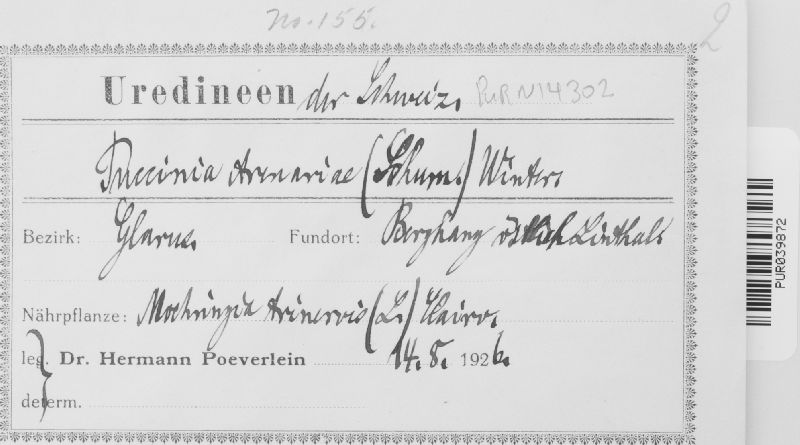 No. 155.
2
Uredineen der Schweiz. PUR N14302
Puccinia Arenariae (Schum.) Winter.
Bezirk: Glarus. Fundort: Berghang östlich Linthal.
Nährpflanze: Moehringia trinervis (L.) Clairv.
leg. Dr. Hermann Poeverlein 14. 8. 1926.
determ.
PUR039872